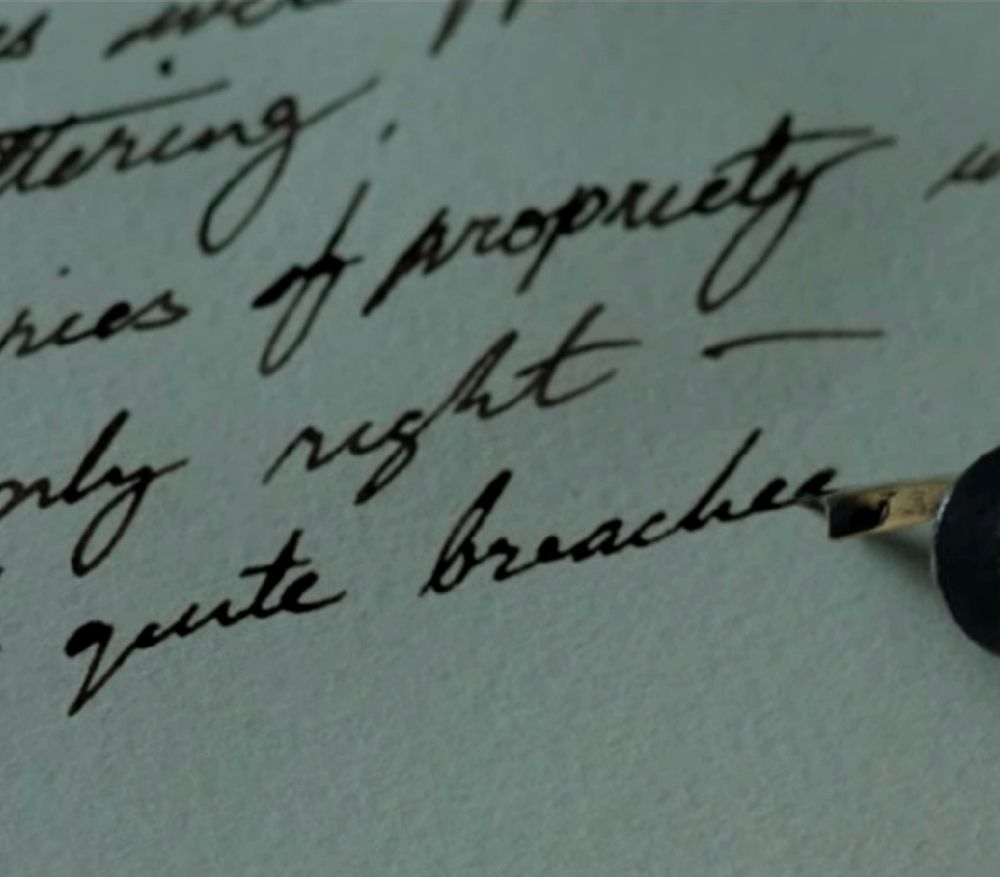 ttering,
ries of propriety
only right —
quite breache